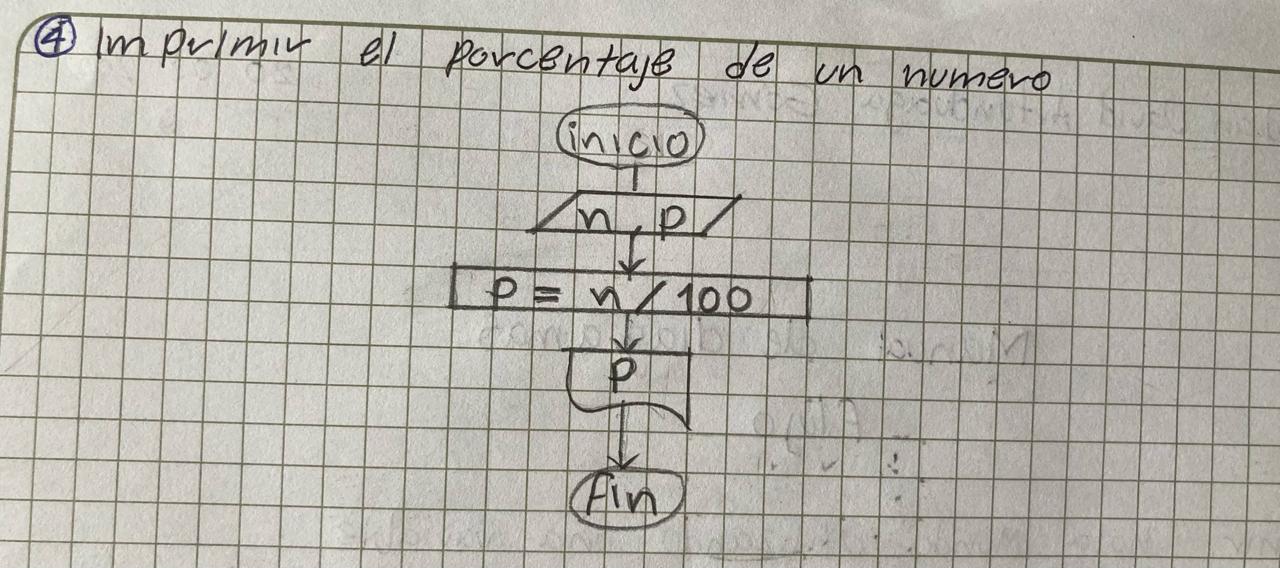 ④ Imprimir el porcentaje de un numero
inicio
n, p
P = n / 100
P
Fin